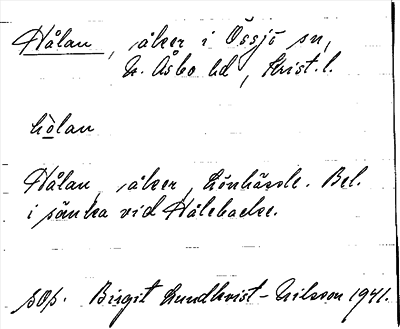 Hålan, åker i Össjö sn,
N. Åsbo hd, Krist. l.
hòlan
Hålan, åker, Lönhässle. Bel.
i sänka vid Hålebacke.
sOp. Birgit Lundkvist-Nilsson 1941.